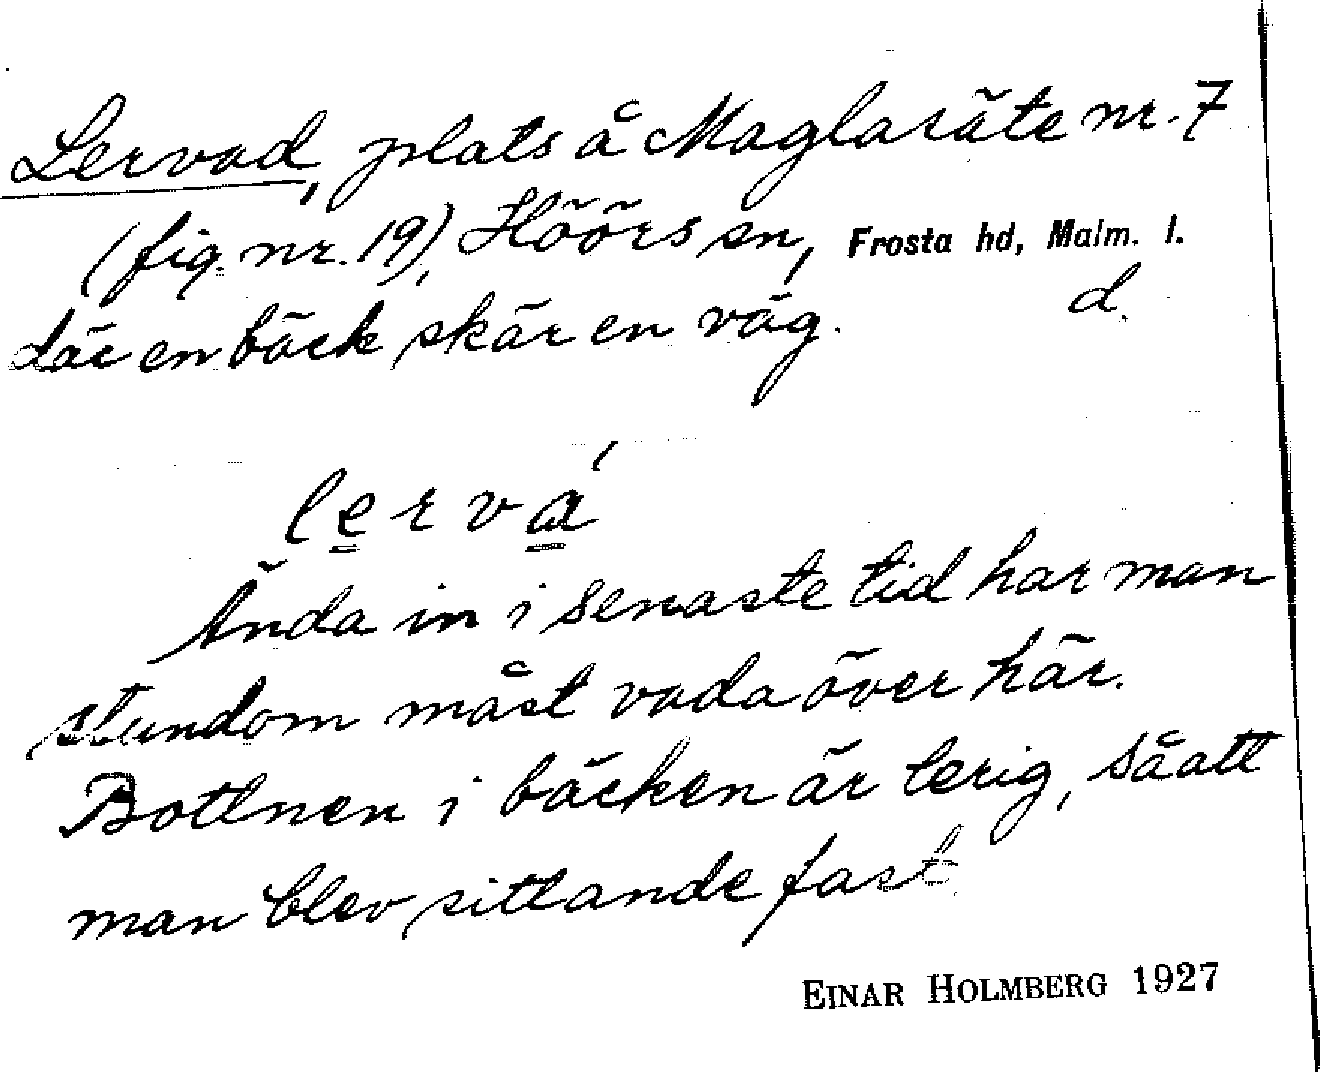 Lervad, plats å Maglasäte nr. 7
(fig. nr. 19), Höörs sn, Frosta hd, Malm. l.
där en bäck skär en väg. d.
lervá
Ända in i senaste tid har man
stundom måst vada över här.
Bottnen i bäcken är lerig, såatt
man blev sittande fast.
EINAR HOLMBERG 1927